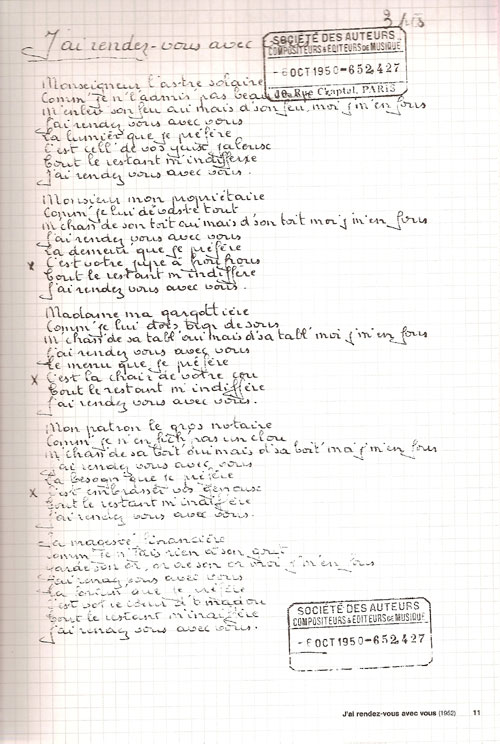 3 
J'ai rendez-vous avec
SOCIÉTÉ DES AUTEURS
COMPOSITEURS & EDITEURS DE MUSIQUE
- 6 OCT 1950 - 652,427
10, Rue Chaptal, PARIS
Monseigneur l'astre solaire
Comm' je n' l'admir' pas beau
M'enlèv' son feu oui mais d'son feu, moi j'm'en fous
J'ai rendez vous avec vous
La lumièr' que je préfère
C'est cell' de vos yeux jaloux
Tout le restant m'indiffère
J'ai rendez vous avec vous.
Monsieur mon propriétaire
Comm' je lui dévaste tout
M'chass' de son toit oui mais d'son toit moi j'm'en fous
J'ai rendez vous avec vous
La demeur' que je préfère
x C'est votre jupe à froufrous
Tout le restant m'indiffère
J'ai rendez vous avec vous.
Madame ma gargottière
Comm' je lui dois trop de sous
M'chass' de sa tabl' oui mais d'sa tabl' moi j'm'en fous
J'ai rendez vous avec vous
Le menu que je préfère
x C'est la chair de votre cou
Tout le restant m'indiffère
J'ai rendez vous avec vous.
Mon patron le gros notaire
Comm' je n'en fich pas un clou
M'chass' de sa boît' oui mais d'sa boît' moi j'm'en fous
J'ai rendez vous avec vous
La besogn' que je préfère
x C'est embrasser vos genoux
Tout le restant m'indiffère
J'ai rendez vous avec vous.
Sa majesté financière
Comm' je n'fais rien à son goût
Garde son or, or de son or moi j'm'en fous
J'ai rendez vous avec vous
La fortun' que je préfère
C'est votre cœur d'amadou
Tout le restant m'indiffère
J'ai rendez vous avec vous.
SOCIÉTÉ DES AUTEURS
COMPOSITEURS & EDITEURS DE MUSIQUE
- 6 OCT 1950 - 652,427
J'ai rendez-vous avec vous (1952) 11